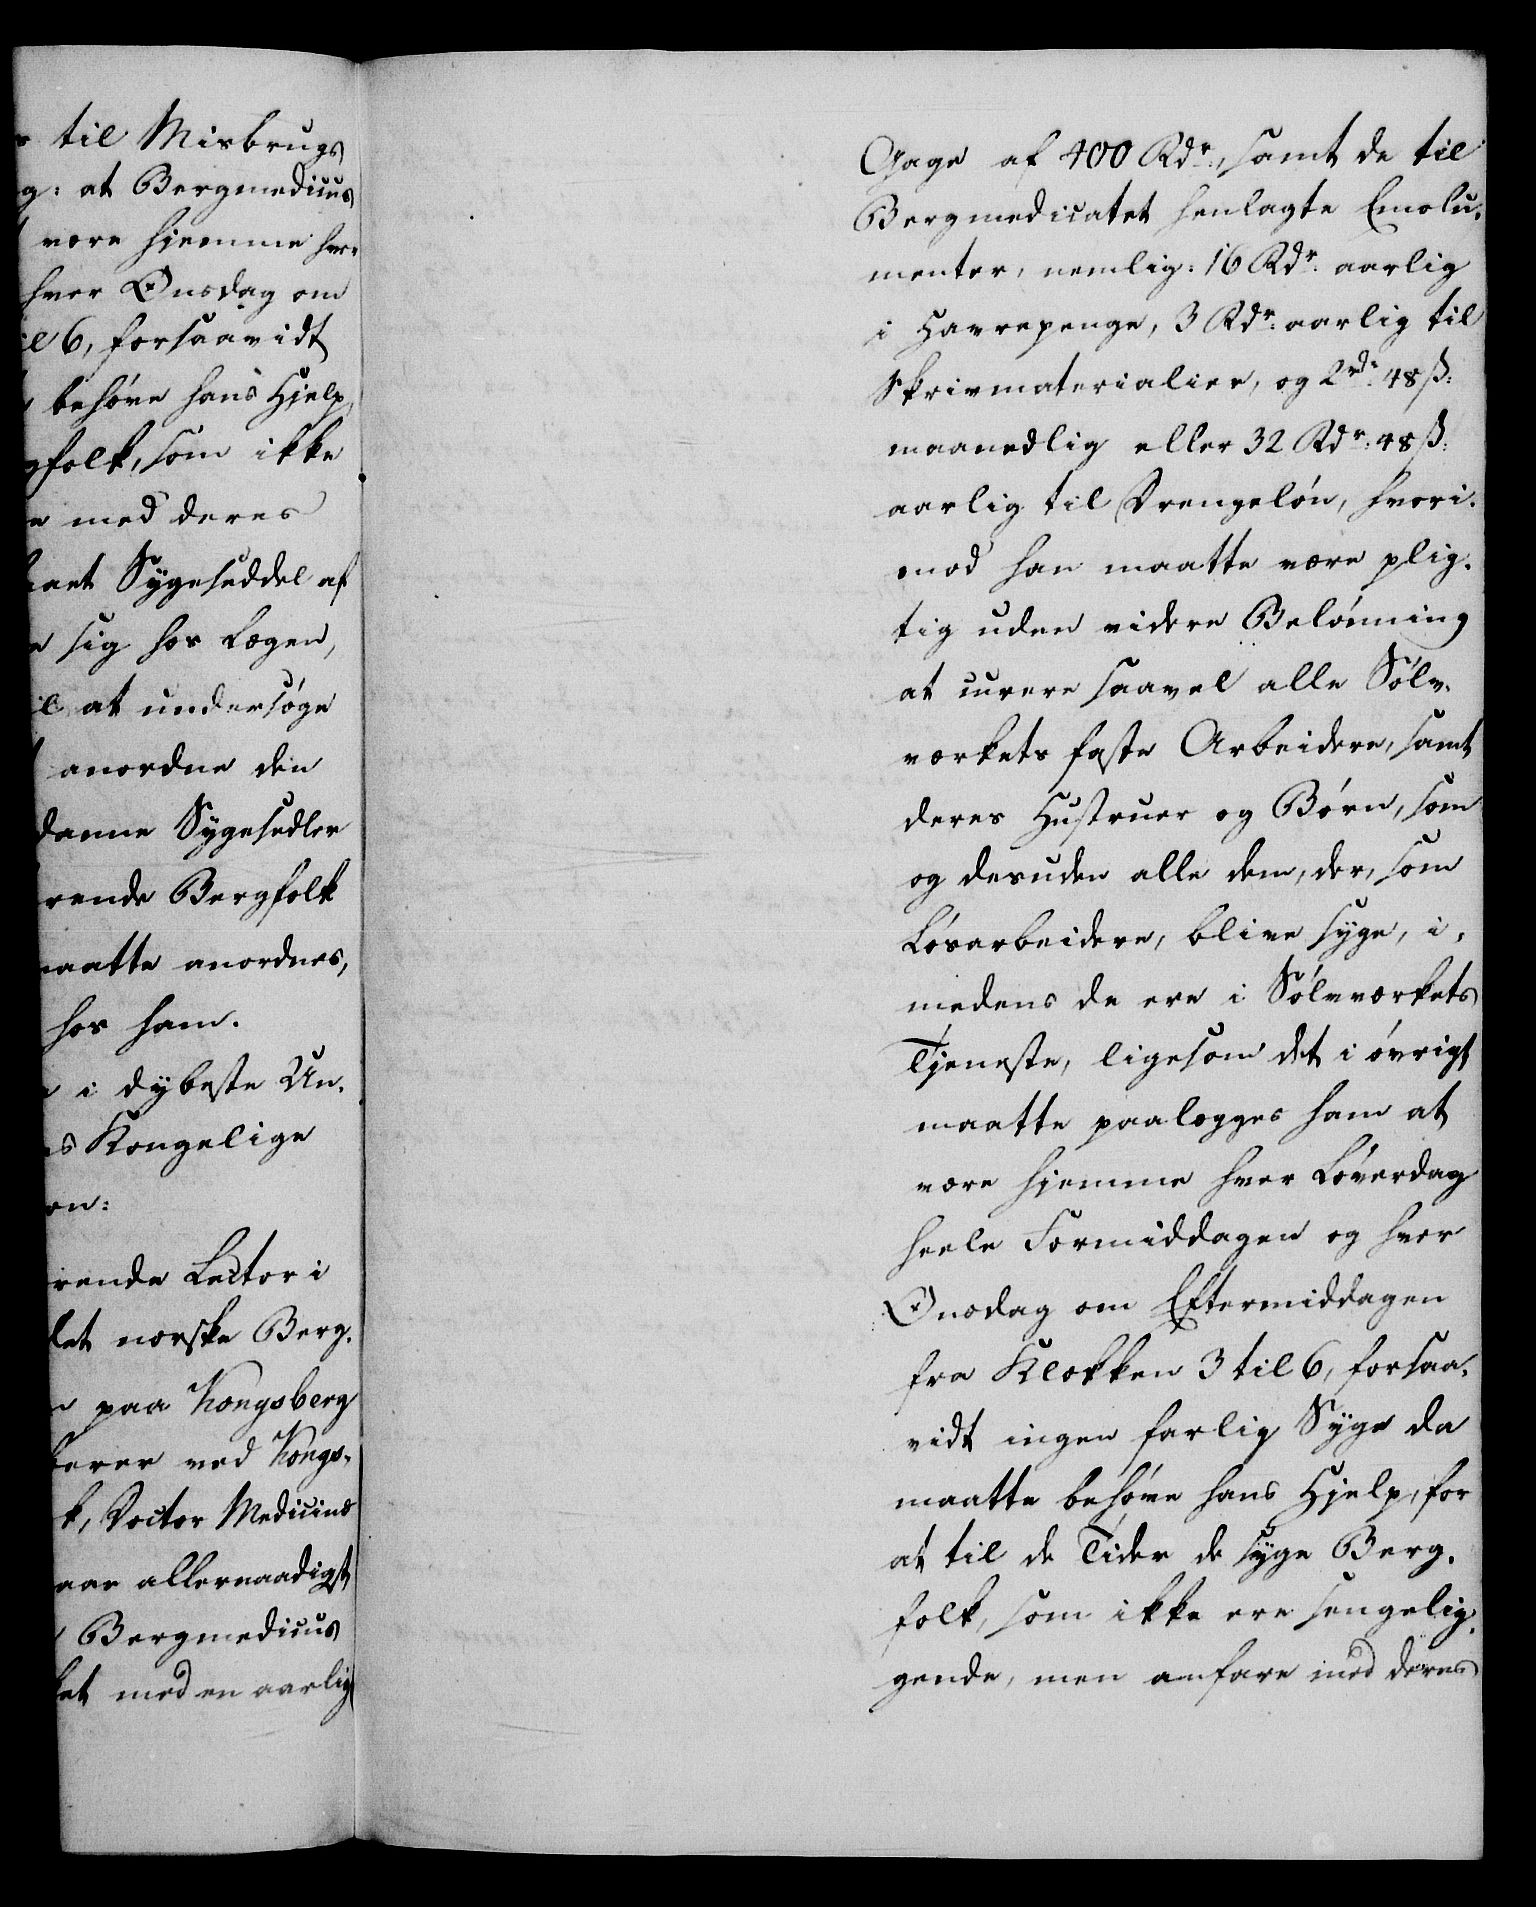 til Misbrugs
g: at Bergmedicus
være hjemme hver
hver Onsdag om
il 6, forsaavidt
behøve hans Hjelp,
gfolk, som ikke
e med deres
Sygeseddel af
e sig hos Lægen,
il at undersøge
anordne den
danne Sygesedler
rende Bergfolk
maatte anordnes,
hos ham.
e i dybeste Un-
es Kongelige
on:
rende Lector i
det norske Berg-
paa Kongsberg
ved Kongs-
k, Doctor Medicinæ
aae allernaadigst
Bergmedicus
ket med en aarlig
Gage af 400 Rdr:, samt de til
Bergmedicatet henlagte Emolu-
menter, nemlig: 16 Rdr. aarlig
i Havrepenge, 3 Rdr: aarlig til
Skrivmaterialier, og 2 rd: 48 ß:
maanedlig eller 32 Rdr: 48 ß:
aarlig til Drengeløn, hvori-
mod han maatte være plig-
tig uden videre Belønning
at curere saavel alle Sølv-
værkets faste Arbeidere, samt
deres Hustruer og Børn, som
og desuden alle dem, der, som
Løsarbeidere, blive syge, i-
medens de ere i Sølvværkets
Tjeneste, ligesom det i øvrigt
maatte paalægges ham at
være hjemme hver Løverdag
heele Formiddagen og hver
Onsdag om Eftermiddagen
fra Klokken 3 til 6, forsaa-
vidt ingen farlig Syge da
maatte behøve hans Hjelp, for
at til de Tider de syge Berg-
folk, som ikke ere sengelig-
gende, men anfare med deres